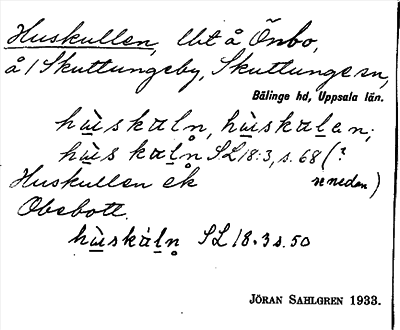 Huskullen, lht å Önbo,
å / Skuttungeby, Skuttunge sn,
Bälinge hd, Uppsala län.
hùskaln, hùskalen;
hùs kaln SL 18:3, s. 68 (?
Huskullen ek se nedan)
Obebott.
hùskàln SL 18.3 s. 50
JÖRAN SAHLGREN 1933.